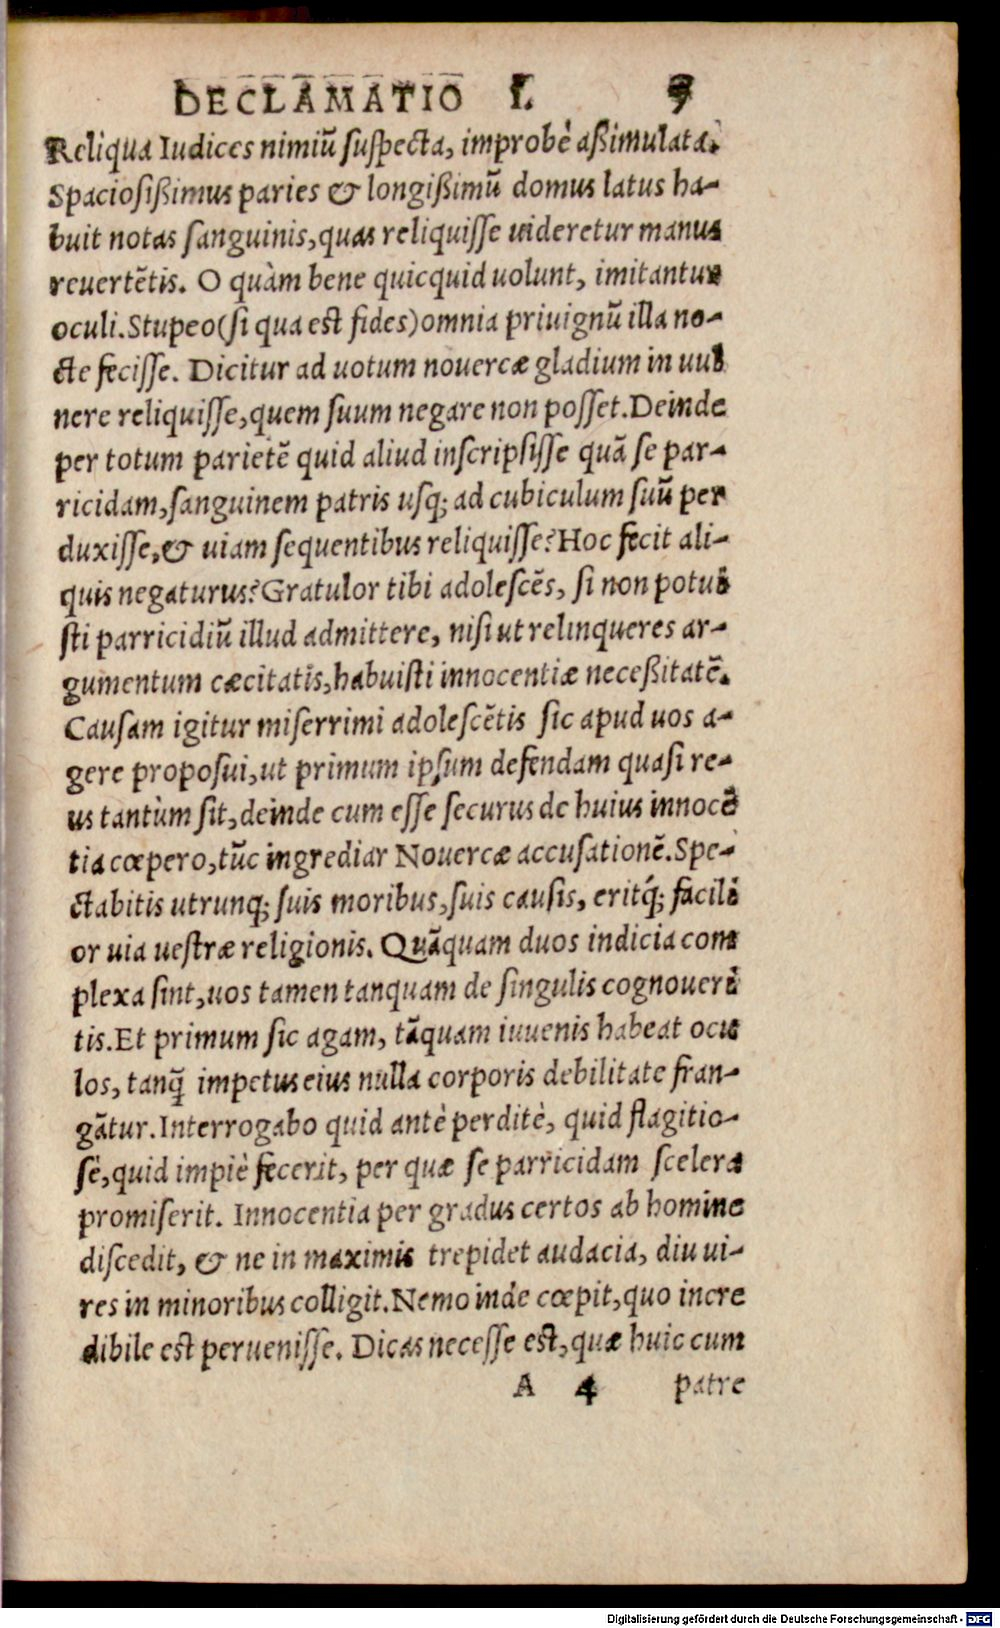 DECLAMATIO I. 7
Reliqua Iudices nimiū suspecta, improbè aßimulata.
Spaciosißimus paries & longißimū domus latus ha-
buit notas sanguinis, quas reliquisse uideretur manus
reuertētis. O quàm bene quicquid uolunt, imitantur
oculi. Stupeo (si qua est fides) omnia priuignū illa no-
cte fecisse. Dicitur ad uotum nouercæ gladium in uul
nere reliquisse, quem suum negare non posset. Deinde
per totum parietē quid aliud inscripsisse quā se par-
ricidam, sanguinem patris usq; ad cubiculum suū per
duxisse, & uiam sequentibus reliquisse? Hoc fecit ali-
quis negaturus? Gratulor tibi adolescēs, si non potui
sti parricidiū illud admittere, nisi ut relinqueres ar-
gumentum cæcitatis, habuisti innocentiæ neceßitatē.
Causam igitur miserrimi adolescētis sic apud uos a-
gere proposui, ut primum ipsum defendam quasi re-
us tantùm sit, deinde cum esse securus de huius innocē
tia cœpero, tūc ingrediar Nouercæ accusationē. Spe-
ctabitis utrunq; suis moribus, suis causis, eritq́; facili
or uia uestræ religionis. Quāquam duos indicia com
plexa sint, uos tamen tanquam de singulis cognoueri
tis. Et primum sic agam, tāquam iuuenis habeat ocu
los, tanq̄ impetus eius nulla corporis debilitate fran-
gātur. Interrogabo quid antè perditè, quid flagitio-
sè, quid impiè fecerit, per quæ se parricidam scelera
promiserit. Innocentia per gradus certos ab homine
discedit, & ne in maximis trepidet audacia, diu ui-
res in minoribus colligit. Nemo inde cœpit, quo incre
dibile est peruenisse. Dicas necesse est, quæ huic cum
A 4 patre
Digitalisierung gefördert durch die Deutsche Forschungsgemeinschaft - DFG